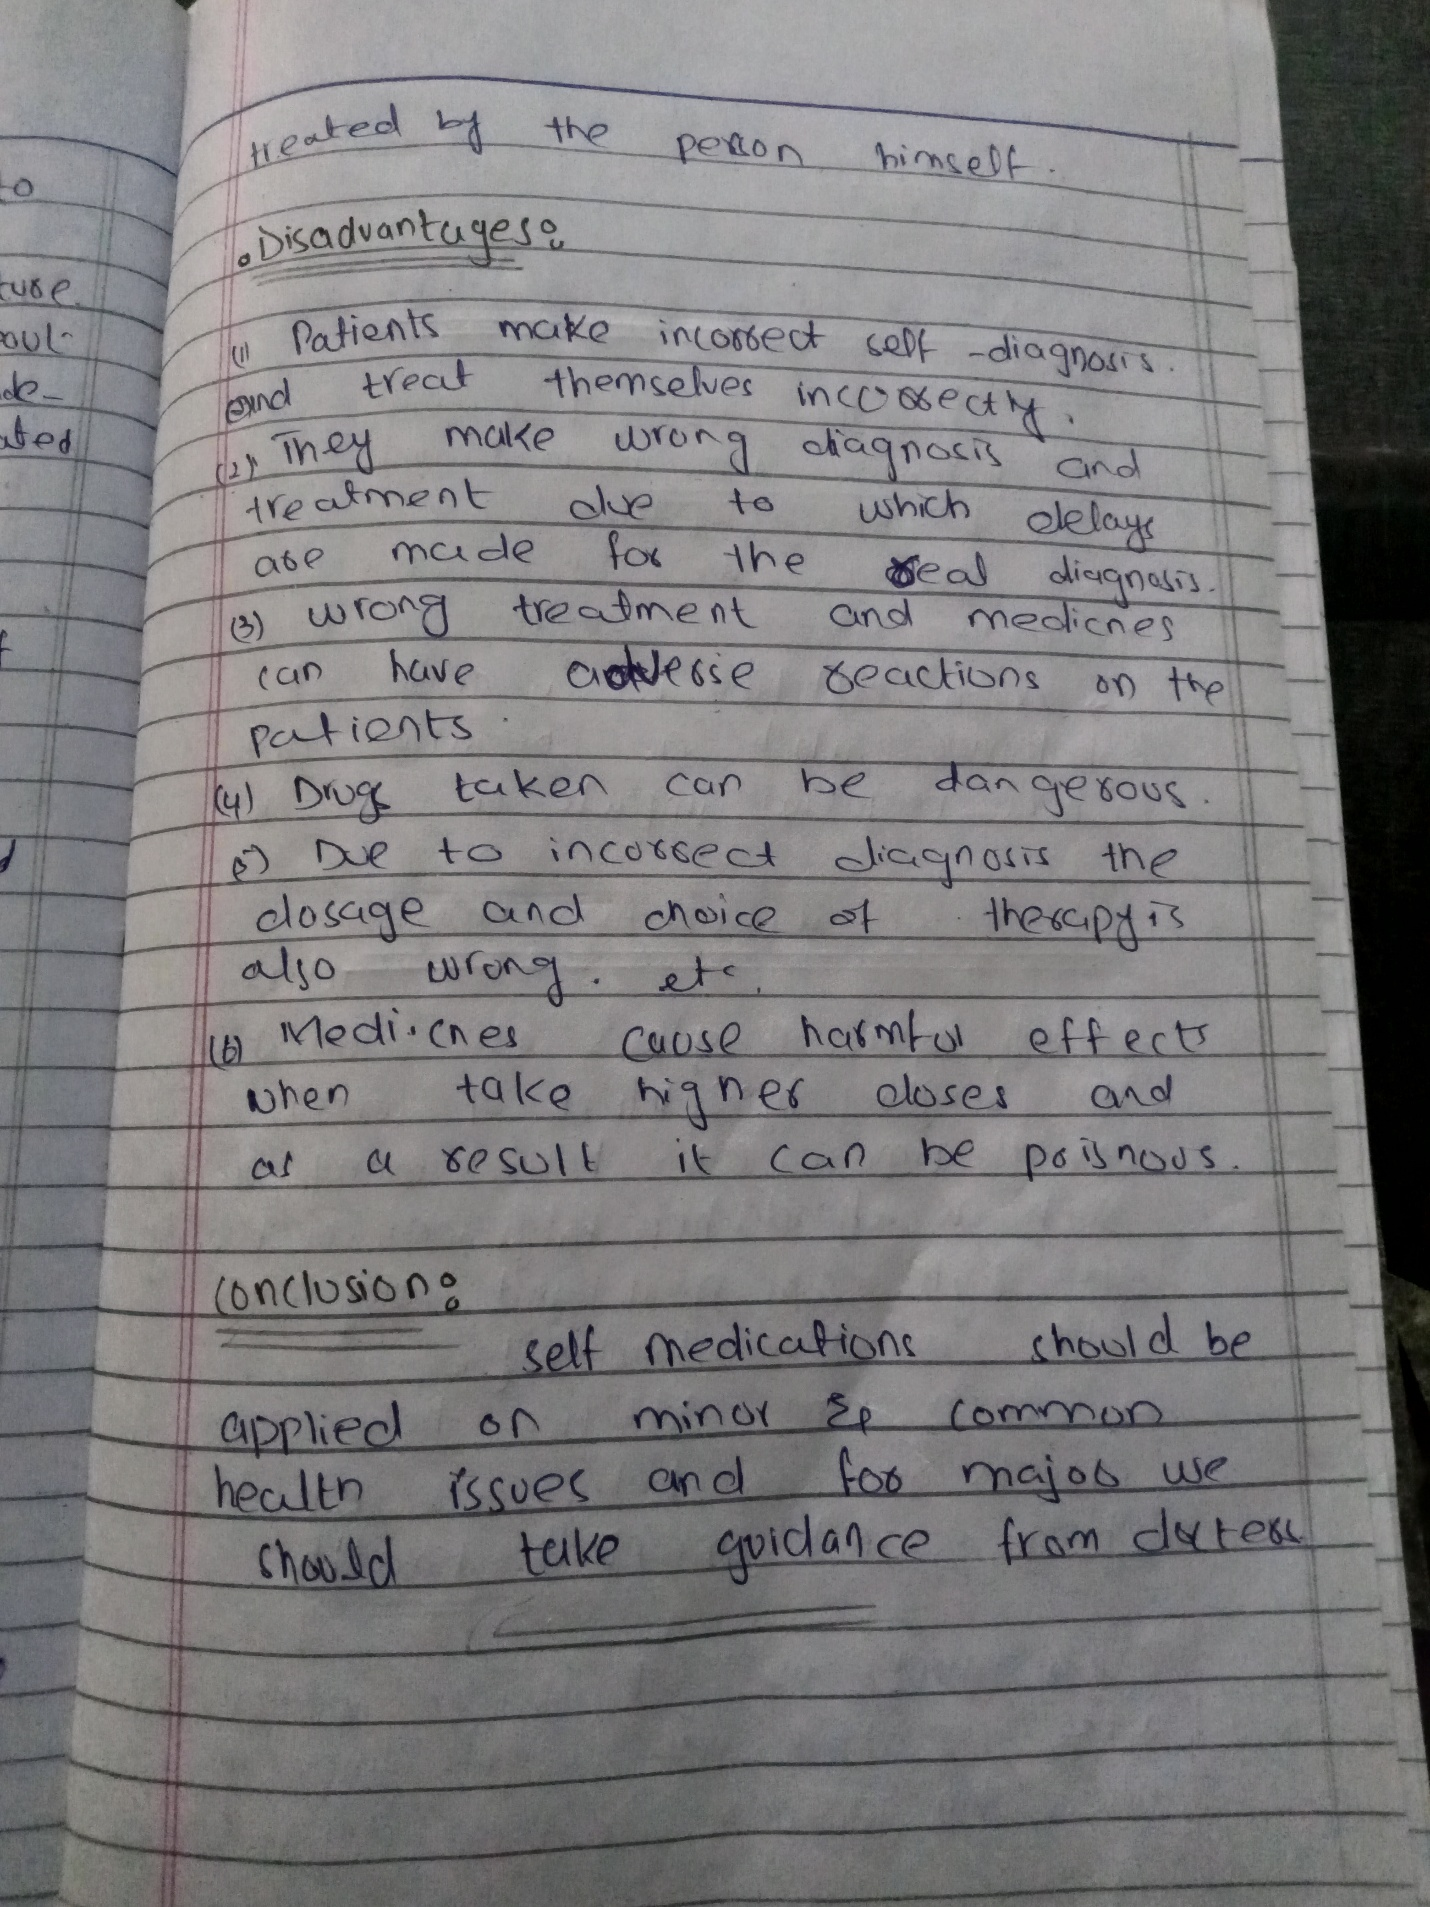 treated by the person himself.
• Disadvantages:
(1) Patients make incorrect self -diagnosis.
and treat themselves incorrectly.
(2) They make wrong diagnosis and
treatment due to which delays
are made for the real diagnosis.
(3) wrong treatment and medicnes
can have adverse reactions on the
patients.
(4) Drugs taken can be dangerous.
(5) Due to incorrect diagnosis the
dosage and choice of therapy is
also wrong. etc.
(6) Medicnes cause harmful effects
when take higher doses and
as a result it can be poisnous.
Conclusion:
self medications should be
applied on minor & common
health issues and for major use
should take guidance from